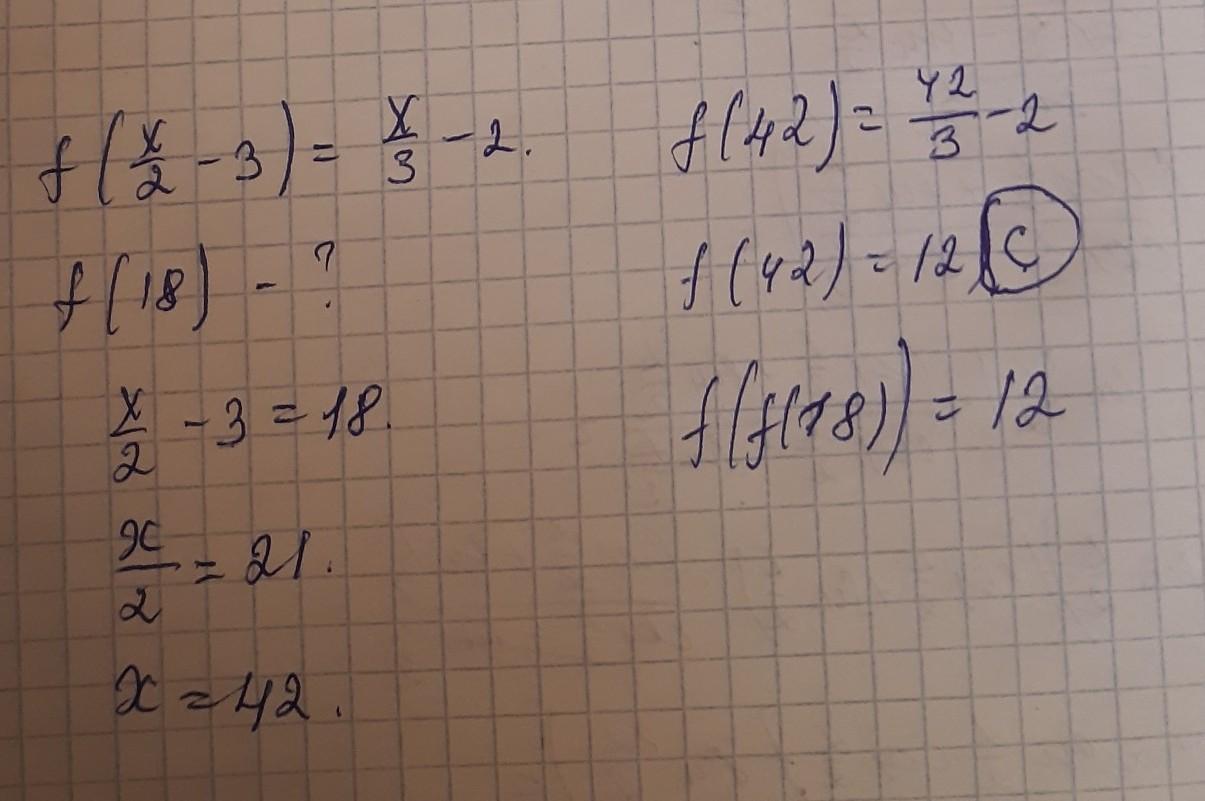 f(x/2 - 3) = x/3 - 2.
f(18) - ?
x/2 - 3 = 18.
x/2 = 21.
x = 42.
f(42) = 42/3 - 2
f(42) = 12 C
f(f(18)) = 12